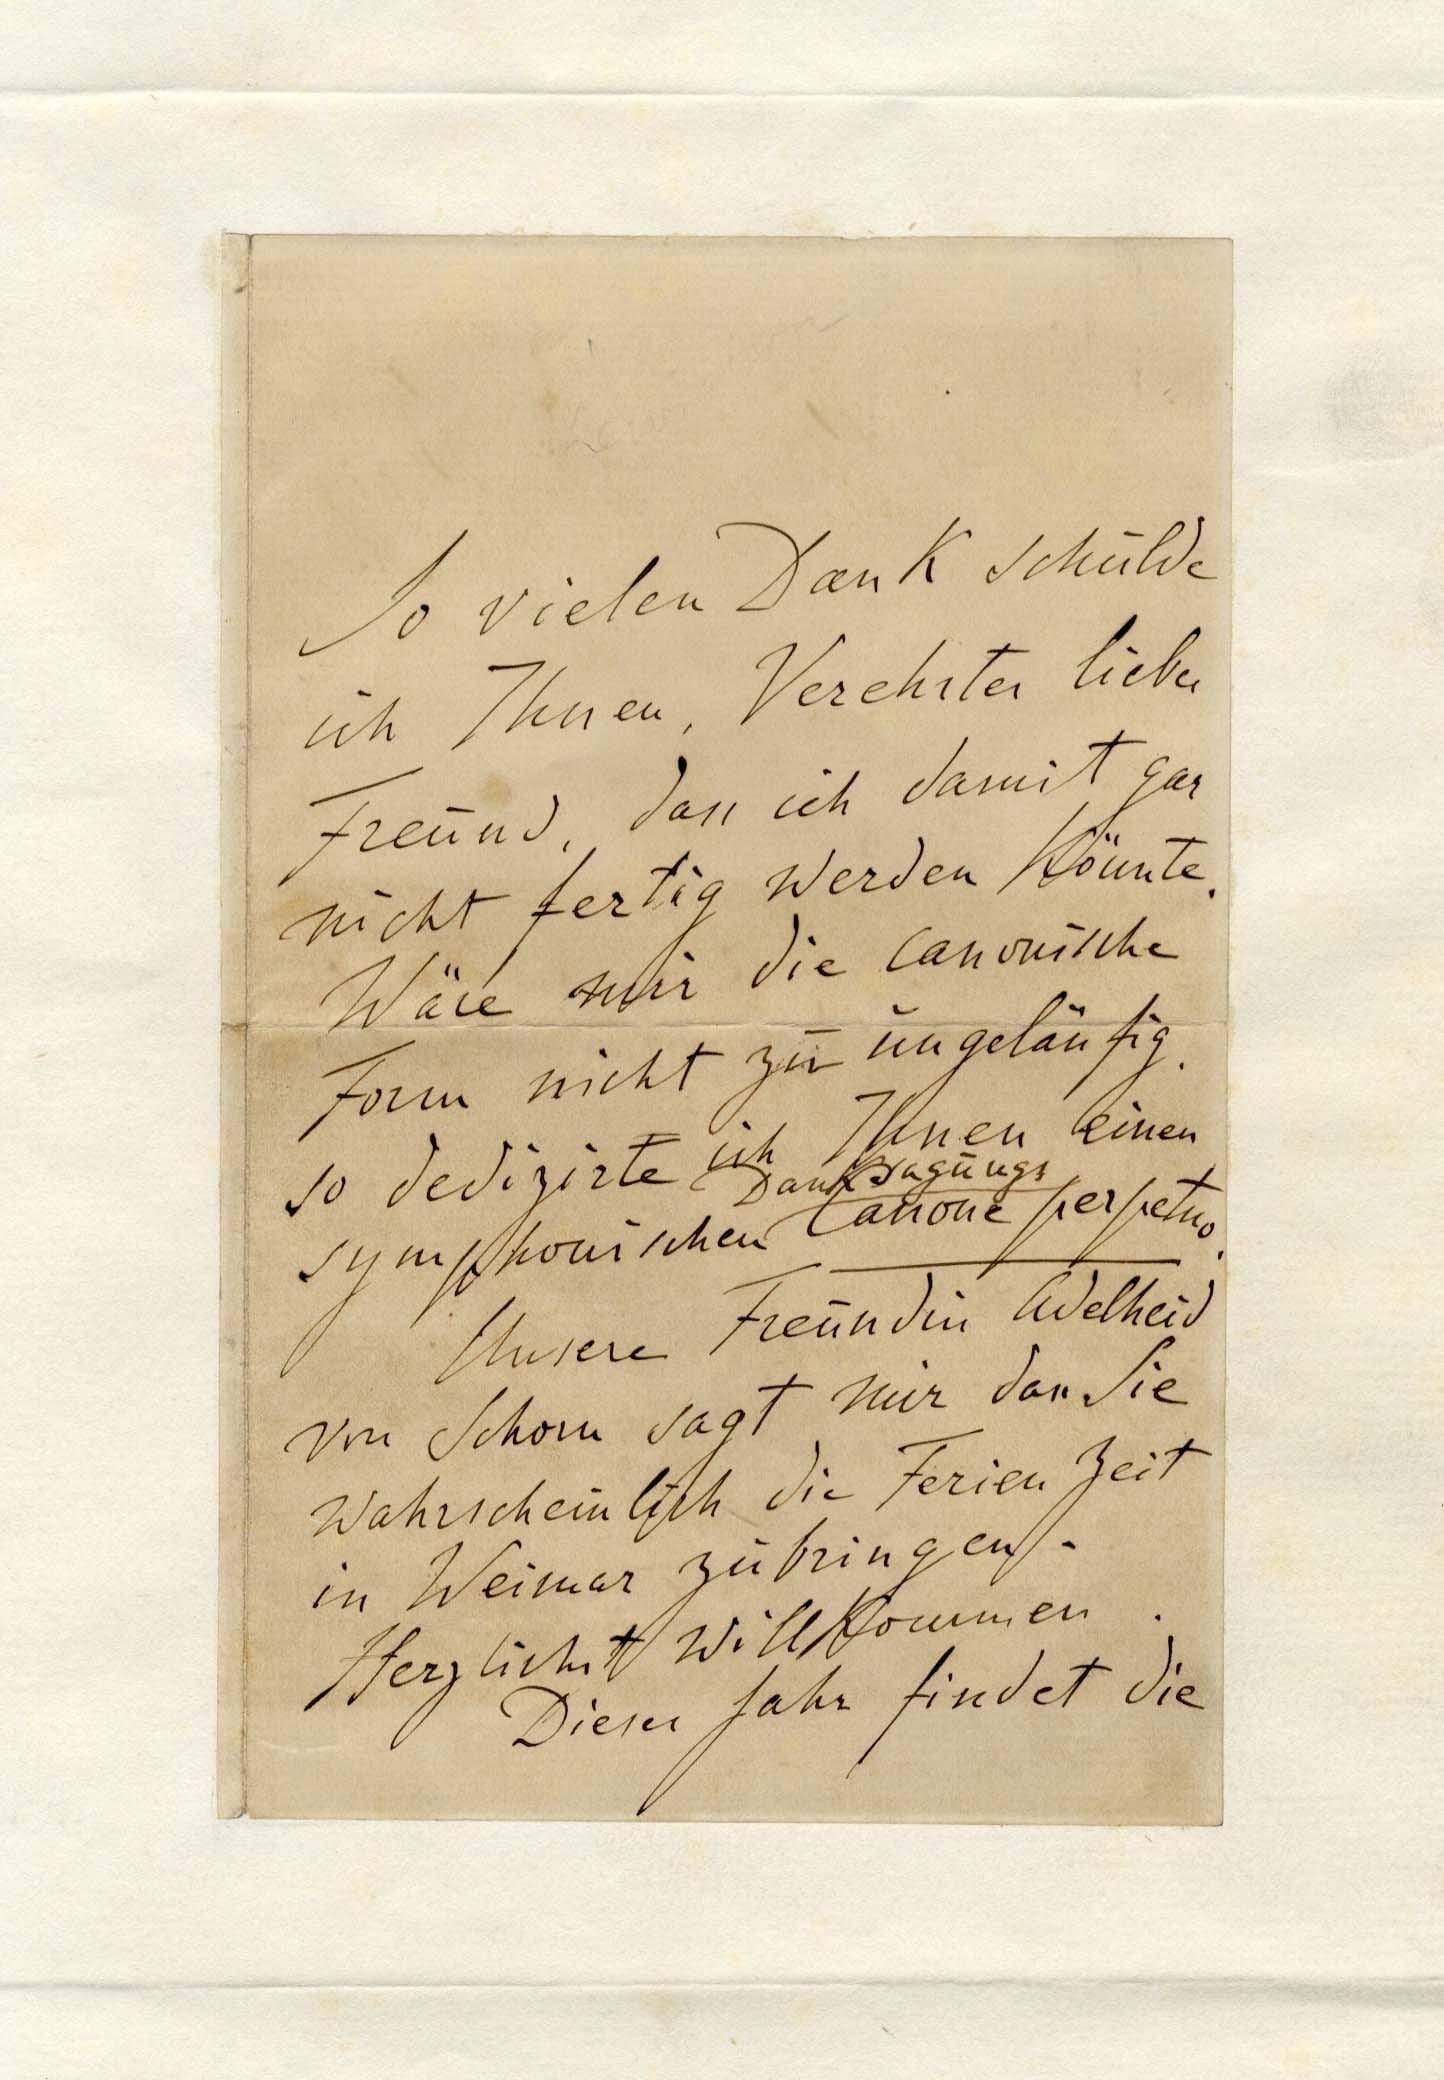 So vielen Dank schulde
ich Ihnen, Verehrter lieber
Freund, dass ich damit gar
nicht fertig werden könnte.
Wäre mir die canonische
Form nicht zu ungeläufig,
so dedizirte ich Ihnen einen
Danksagungs
symphonischen Canone perpetuo.
Unsere Freundin Adelheid
von Schorn sagt mir dass Sie
wahrscheinlich die Ferien Zeit
in Weimar zubringen.
Herzlichst willkommen.
Dieses Jahr findet die